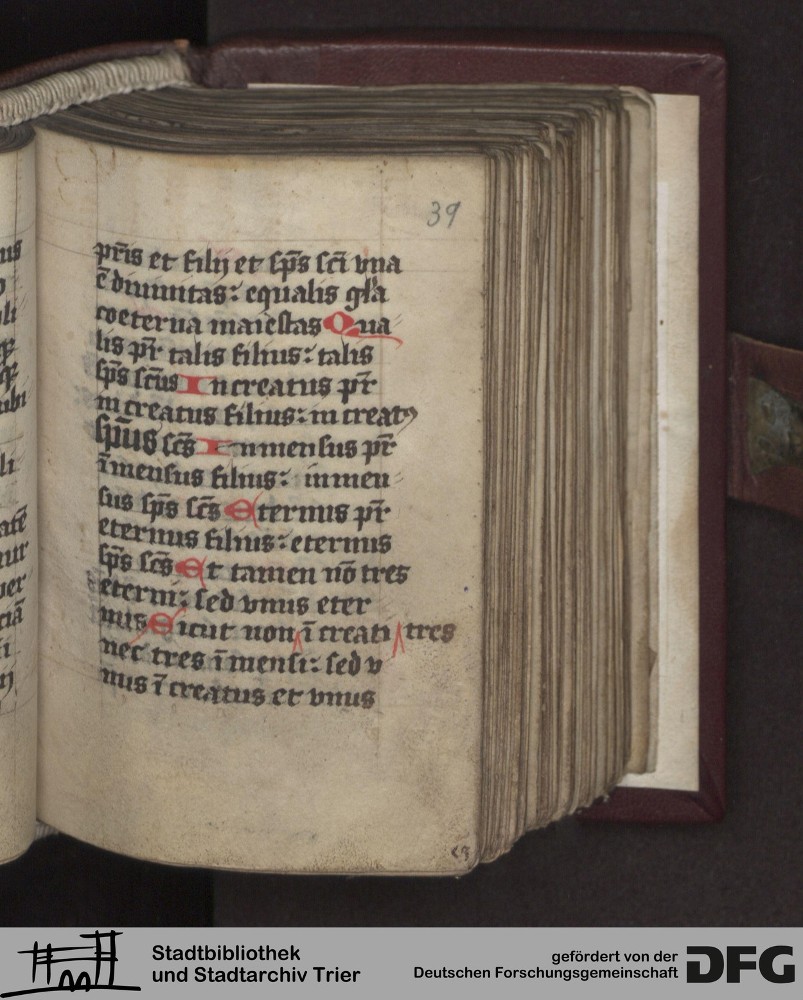 39
pr̄is et filij et sp̄s sc̄i vna
ē diuinitas: equalis gl̄a
coeterna maiestas Qua
lis pr̄ talis filius: talis
sp̄s sc̄us Increatus pr̄
increatus filius: increatꝰ
sp̄us sc̄s Inmensus pr̄
īmensus filius: inmen
sus sp̄s sc̄s Eternus pr̄
eternus filius: eternus
sp̄s sc̄s Et tamen nō tres
eterni: sed vnus eter
nus Sicut non tres īcreati
nec tres īmensi: sed v
nus īcreatus et vnus
Stadtbibliothek
und Stadtarchiv Trier
gefördert von der
Deutschen Forschungsgemeinschaft
DFG